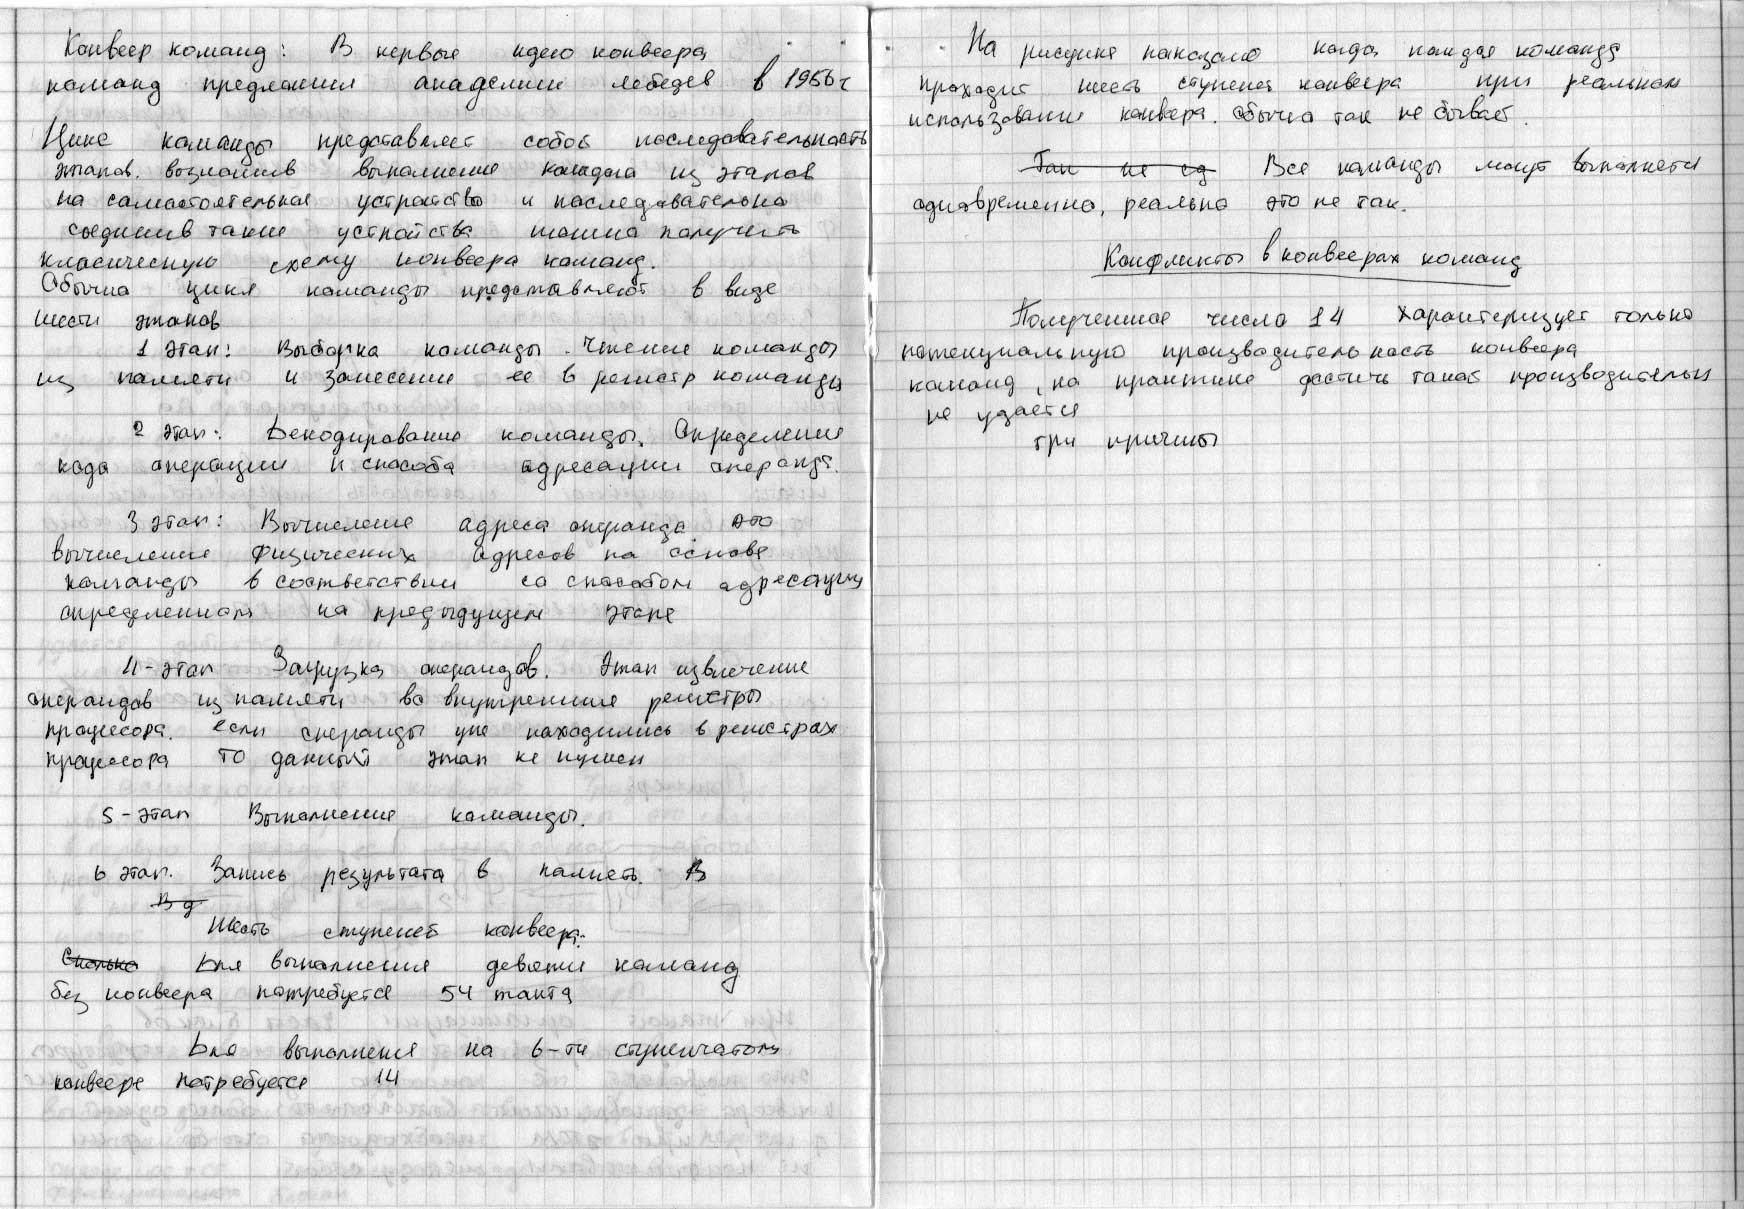 Конвеер команд: В первые идею конвеера
команд предложил академик лебедев в 1956г
Цикл команды представляет собой последовательность
этапов. возложив выполнение каждого из этапов
на самостоятельное устройство и последовательно
соединив такие устройства можно получить
класическую схему конвеера команд.
Обычно цикл команды представляют в виде
шести этапов
1 этап: Выборка команды. Чтение команды
из памяти и занесение ее в регистр команды
2 этап: Декодирование команды. Определение
кода операции и способа адресации операнда.
3 этап: Вычисление адреса операнда это
вычисление физических адресов на основе
команды в соответствии со способом адресации
определенном на предыдущем этапе
4-этап Загрузка операндов. Этап извлечение
операндов из памяти во внутренние регистры
процесора. если операнды уже находились в регистрах
процесора то данный этап не нужен
5-этап Выполнение команды.
6 этап. Запись результата в память. В
В д
Шесть ступеней конвеера:
Сколько Для выполнения девяти команд
без конвеера потребуется 54 такта
Для выполнения на 6-ти ступенчатом
конвеере потребуется 14
На рисунке показано когда каждая команда
проходит шесть ступеней конвеера при реальном
использовании конвеера. обычно так не бывает.
Так не ед Все команды могут выполнятся
одновременно, реально это не так.
Конфликты в конвеерах команд
Полученное число 14 характеризует только
потенциальную производительность конвеера
команд, на практике достичь такой производительн
не удается
три причины